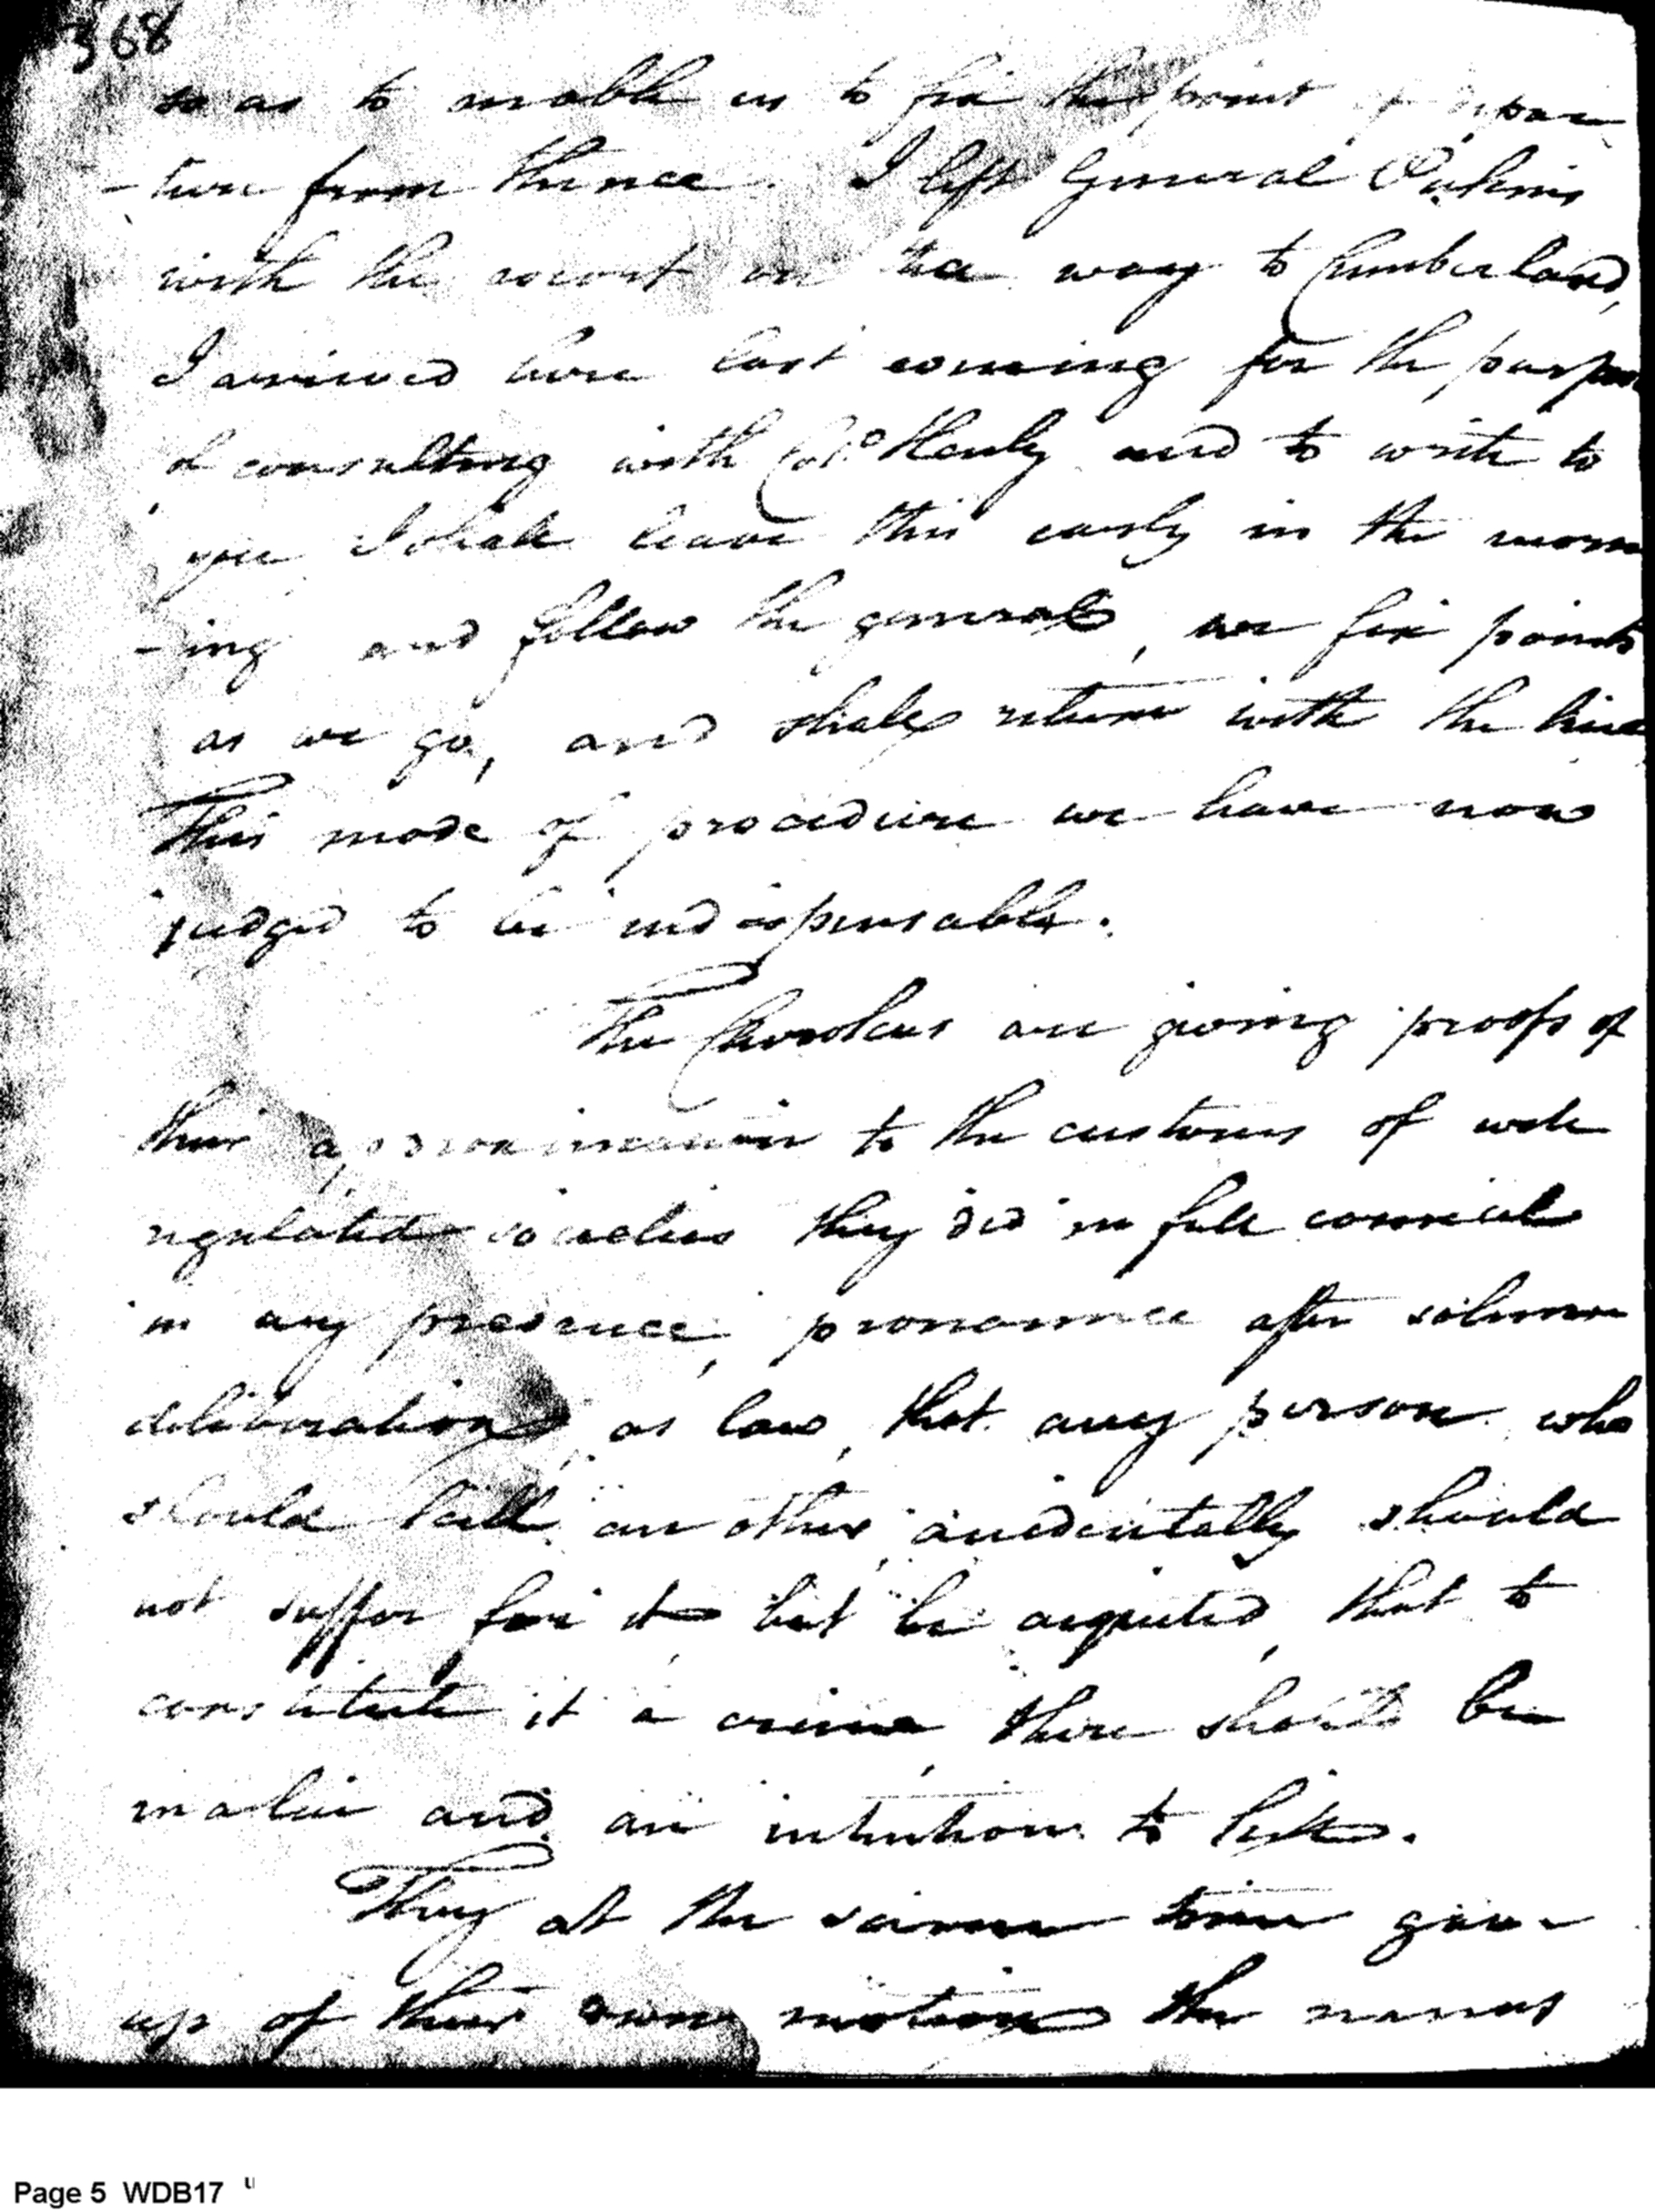 368
so as to enable us to fix the point of depar
-ture from thence. I left General Pickins
with the escort on the way to Cumberland,
I arrived here last evening for the purpose
of consulting with Colo. Henly and to write to
you I shall leave this early in the morn
-ing and follow the general, we fix points
as we go, and shall return with the line
This mode of procedure we have now
judged to be indispensable.
The Cherokees are giving proofs of
their approximation to the customs of well
regulated societies they did in full council
in my presence, pronounce after solemn
deliberation, as law, that any person who
should kill an other accidentally should
not suffer for it but be acquited, that to
constitute it a crime, there should be
malice and an intention to kill.
They at the same time gave
up of their own motion the names
Page 5 WDB17